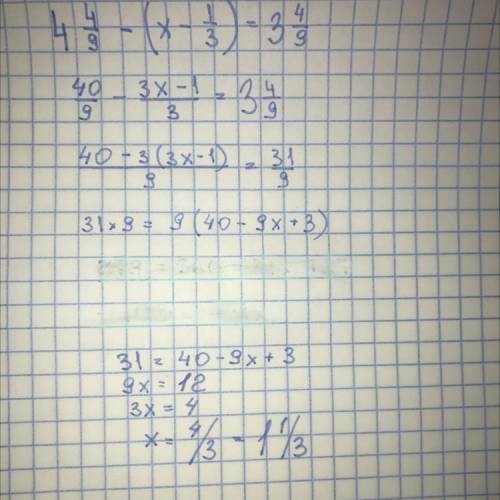 4 4/9 - (x - 1/3) = 3 4/9
40/9 - 3x-1/3 = 3 4/9
40 - 3(3x-1)/9 = 31/9
31×9 = 9(40 - 9x + 3)
31 = 40 - 9x + 3
9x = 12
3x = 4
x = 4/3 = 1 1/3